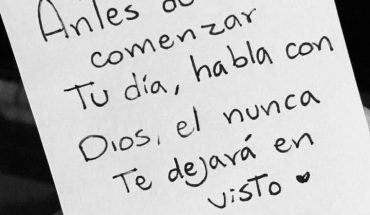 Antes de
comenzar
Tu día, habla con
Dios, el nunca
Te dejará en
visTo ♥